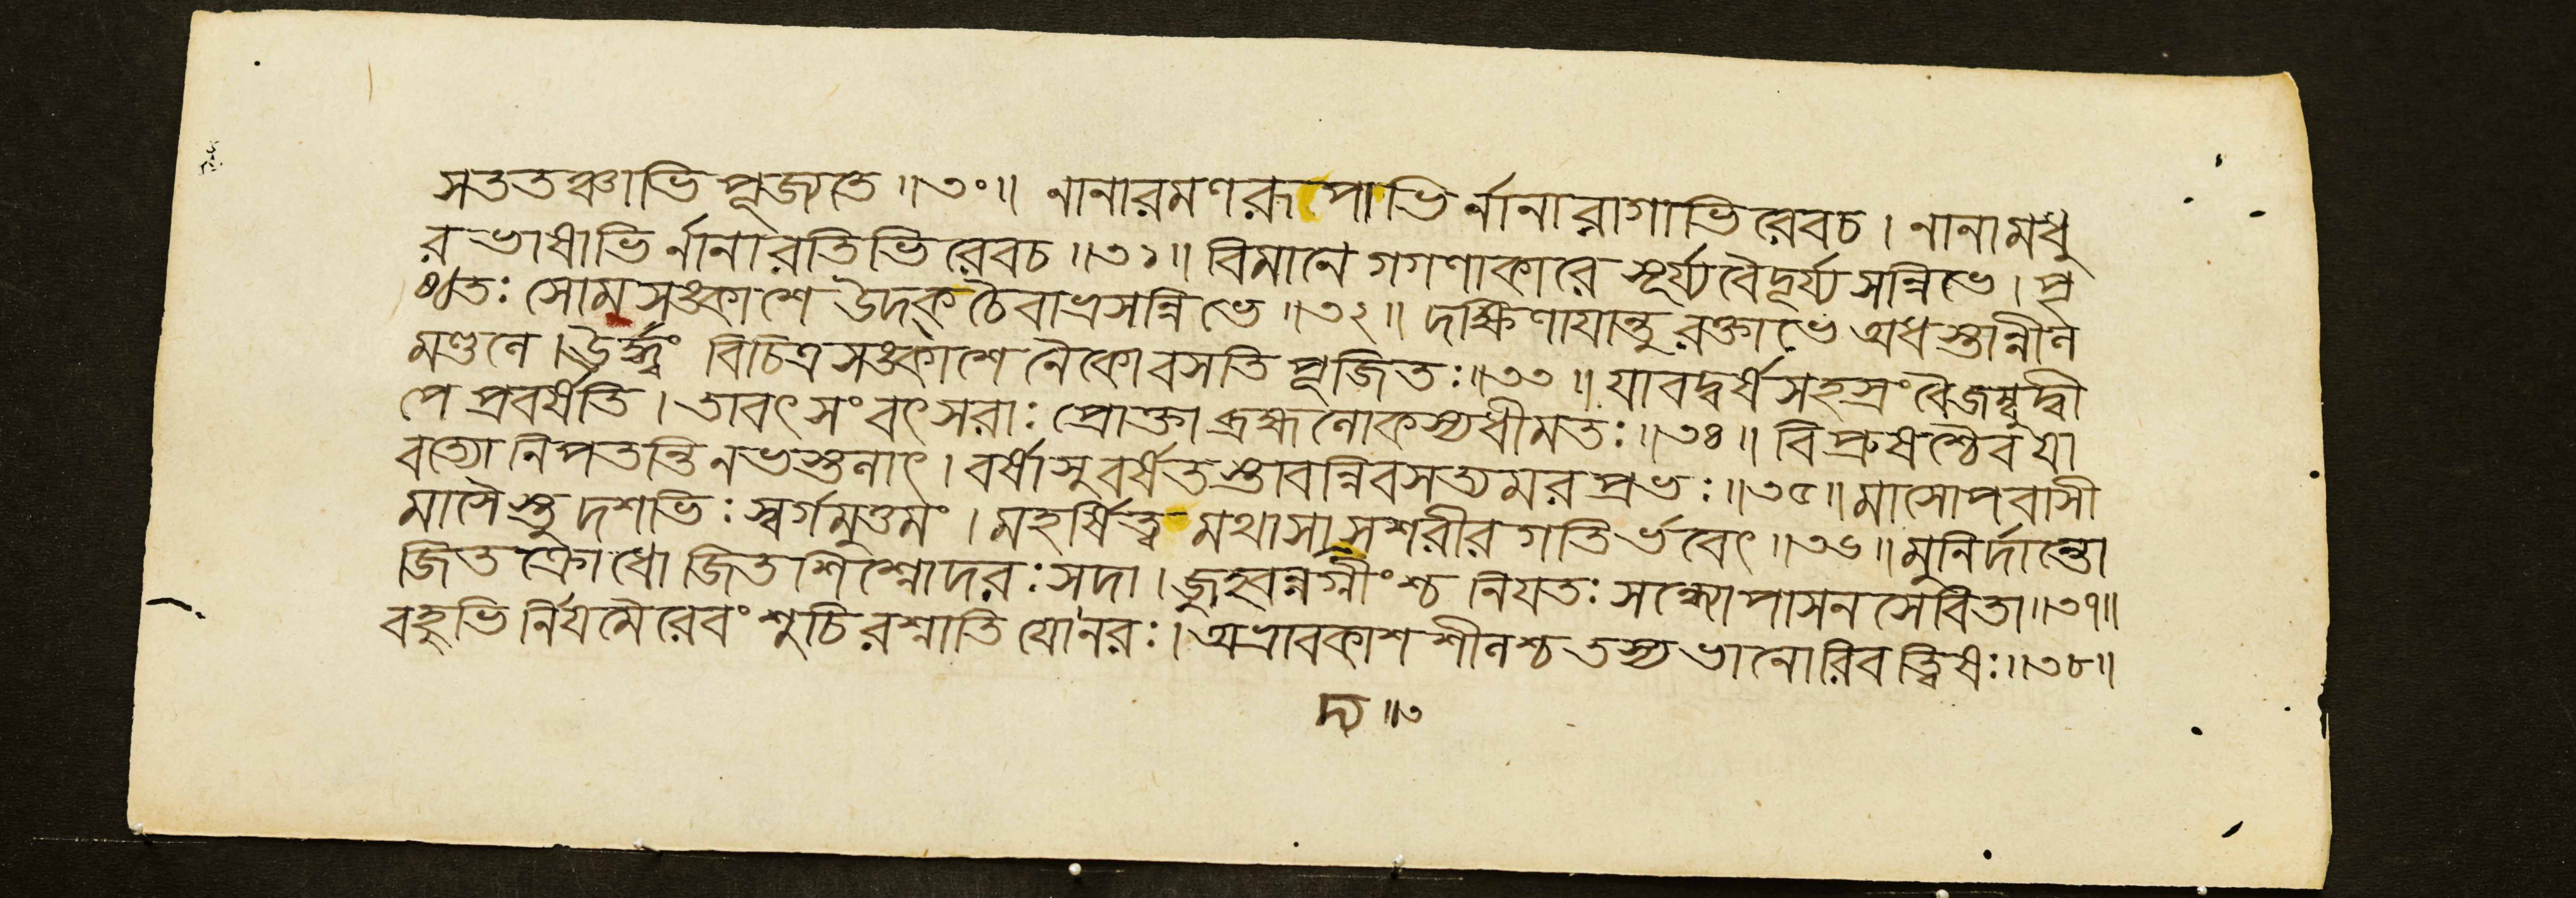 সততঞ্চাভিপূজ্যতে ॥৩০॥ নানারমণরূপাভির্নানারাগাভিরেবচ । নানামধু
রভাষাভির্নানারতিভিরেবচ ॥৩১॥ বিমানে গগণাকারে সূর্য্যবৈদূর্য্যসন্নিভে । পৃ
ষ্ঠতঃ সোমসঙ্কাশে উদক্ চৈবাভ্রসন্নিভে ॥৩২॥ দক্ষিণাযান্তু রক্তাভে অধস্তান্নীল
মণ্ডলে । ঊর্দ্ধ্বং বিচিত্রসঙ্কাশে নৈকো বসতি পূজিতঃ ॥৩৩॥ যাবদ্বর্ষসহস্রং বৈ জম্বুদ্বী
পে প্রবর্ষতি । তাবৎ সংবৎসরাঃ প্রোক্তা ব্রহ্মলোকস্যধীমতঃ ॥৩৪॥ বিপ্রুষশ্চৈব যা
বত্যো নিপতন্তি নভস্তলাৎ । বর্ষাসু বর্ষতস্তাবন্নিবসত্যমরপ্রভঃ ॥৩৫॥ মাসোপবাসী
মাসৈস্তু দশভিঃ স্বর্গমুত্তমং । মহর্ষিত্বমথাসা সশরীর গতির্ভবেৎ ॥৩৬॥ মুনির্দান্তো
জিতক্রোধো জিতশিশ্নোদরঃ সদা । জুহ্বন্নগ্নীংশ্চ নিযতঃ সন্ধ্যোপাসনসেবিতা ॥৩৭॥
বহুভির্নিযমৈরেবং শুচিরশ্নাতি যোনরঃ । অভ্রাবকাশশীলশ্চ তস্য ভানোরিব ত্বিষঃ ॥৩৮॥